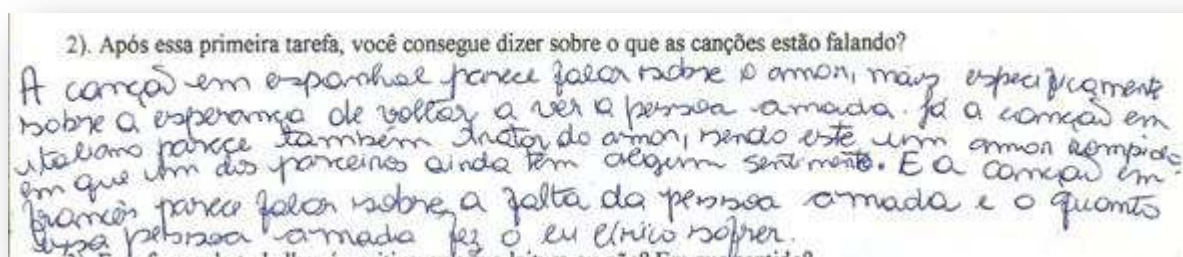 2). Após essa primeira tarefa, você consegue dizer sobre o que as canções estão falando?
A canção em espanhol parece falar sobre o amor, mais especificamente
sobre a esperança de voltar a ver a pessoa amada. Já a canção em
italiano parece também tratar do amor, sendo este um amor rompido
em que um dos parceiros ainda tem algum sentimento. E a canção em
francês parece falar sobre a falta da pessoa amada e o quanto
essa pessoa amada fez o eu lírico sofrer.